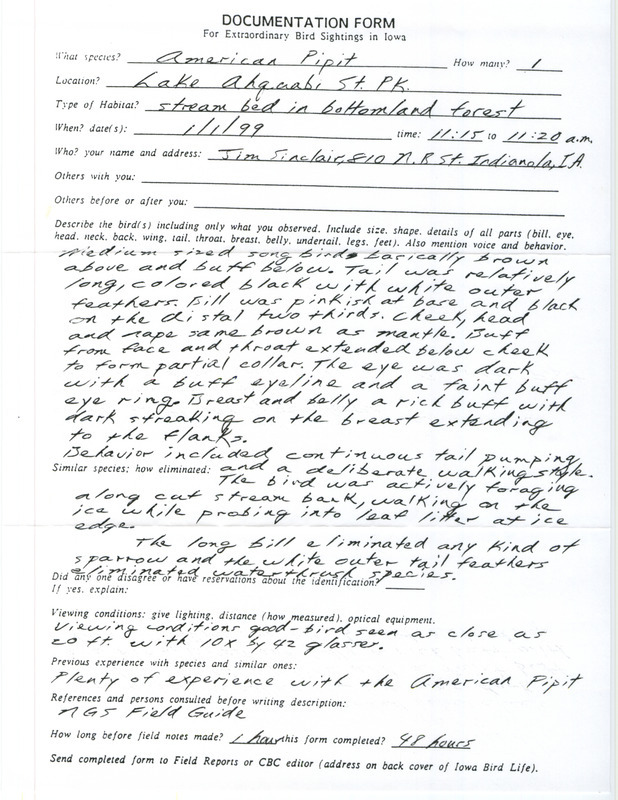 DOCUMENTATION FORM
For Extraordinary Bird Sightings in Iowa
What species? American Pipit How many? 1
Location? Lake Ahquabi St. Pk.
Type of Habitat? stream bed in bottomland forest
When? date(s): 1/1/99 time: 11:15 to 11:20 a.m.
Who? your name and address: Jim Sinclair, 810 N. R St. Indianola, IA
Others with you:
Others before or after you:
Describe the bird(s) including only what you observed. Include size, shape, details of all parts (bill, eye,
head, neck, back, wing, tail, throat, breast, belly, undertail, legs, feet). Also mention voice and behavior.
Medium sized song bird basically brown
above and buff below. Tail was relatively
long, colored black with white outer
feathers. Bill was pinkish at base and black
on the distal two thirds. Cheek, head
and nape same brown as mantle. Buff
from face and throat extended below cheek
to form partial collar. The eye was dark
with a buff eyeline and a faint buff
eye ring. Breast and belly a rich buff with
dark streaking on the breast extending
to the flanks.
Behavior included continuous tail pumping
Similar species: how eliminated: and a deliberate walking style.
The bird was actively foraging
along cut stream bank, walking on the
ice while probing into leaf litter at ice
edge.
The long bill eliminated any kind of
sparrow and the white outer tail feathers
eliminated waterthrush species.
Did any one disagree or have reservations about the identification?
If yes, explain:
Viewing conditions: give lighting, distance (how measured), optical equipment.
Viewing conditions good - bird seen as close as
20 ft. with 10x by 42 glasses.
Previous experience with species and similar ones:
Plenty of experience with the American Pipit
References and persons consulted before writing description:
NGS Field Guide
How long before field notes made? 1 hour this form completed? 48 hours
Send completed form to Field Reports or CBC editor (address on back cover of Iowa Bird Life).